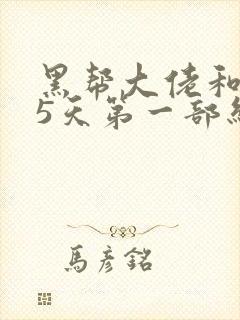 黑帮大佬和
5天第一部
馬彦銘